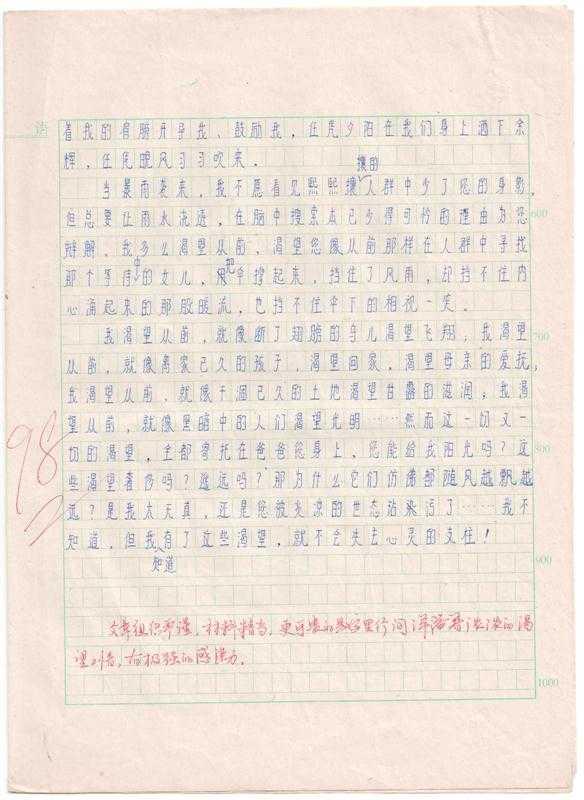 着我的肩膀开导我、鼓励我，任凭夕阳在我们身上洒下余
辉，任凭晚风习习吹来。
攘的
当暴雨袭来，我不愿看见熙熙攘人群中少了您的身影，
但总要让雨水浇透，在脑中搜索本已少得可怜的理由为您
600
辩解。我多么渴望从前、渴望您像从前那样在人群中寻找
中 把
那个等待的女儿，伞撑起来，挡住了风雨，却挡不住内
心涌起来的那股暖流，也挡不住伞下的相视一笑。
我渴望从前，就像断了翅膀的鸟儿渴望飞翔；我渴望
700
从前，就像离家已久的孩子，渴望回家，渴望母亲的爱抚，
我渴望从前、就像干涸已久的土地渴望甘露的滋润；我渴
望从前，就像黑暗中的人们渴望光明……然而这一切又一
切的渴望，全都寄托在爸爸您身上、您能给我阳光吗？这
800
些渴望奢侈吗？遥远吗？那为什么它们仿佛都随风越飘越
远？是我太天真，还是您被炎凉的世态沾染污了……我不
知道，但我有了这些渴望，就不会失去心灵的支柱！
知道
900
98
文章组织严谨，材料精当，更可嘉的是字里行间洋溢着浓浓的渴
望之情，有极强的感染力。
1000